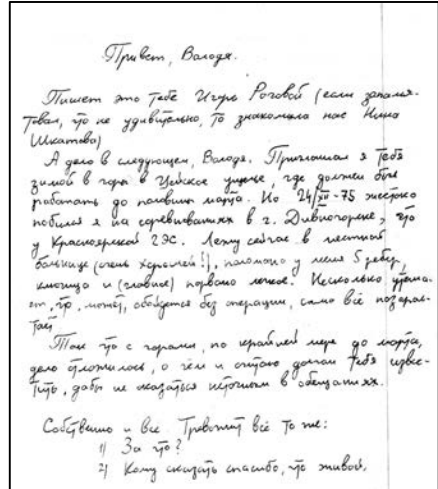 Привет, Володя.
Пишет это тебе Игорь Роговой (если запамя-
товал, что не удивительно, то знакомила нас Нина
Шкатова)
А дело в следующем, Володя. Приглашал я тебя
зимой в горы в Цейское ущелье, где должен был
работать до половины марта. Но 24/XII-75 жестоко
побился я на соревнованиях в г. Дивногорске, что
у Красноярской ГЭС. Лежу сейчас в местной
больнице (очень хорошей!), поломано у меня 5 рёбер,
ключица и (главное) порвано легкое. Несколько утеша-
ет, что, может, обойдется без операции, само всё позарас-
тает
Так что с горами, по крайней мере до марта,
дело отложилось, о чём и считаю должным тебя извес-
тить, дабы не оказаться нечестным в обещаниях.
Собственно и все. Тревожит всё то же:
1) За что?
2) Кому сказать спасибо, что живой.